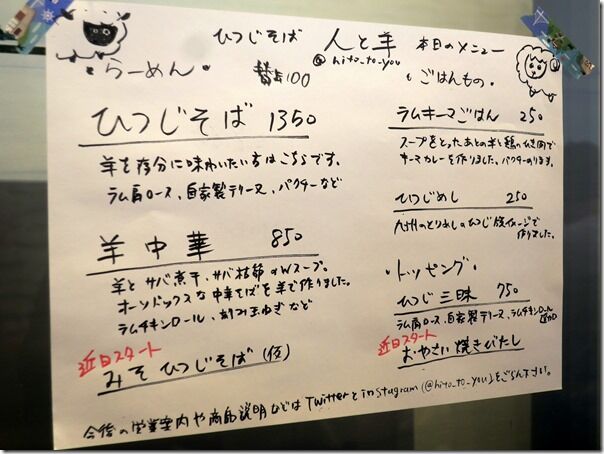 ひつじそば 人と羊 本日のメニュー
@hito_to_you
・らーめん・ 替玉100
ひつじそば 1350
羊を存分に味わいたい方はこちらです。
ラム肩ロース、自家製テリーヌ、パクチーなど
羊中華 850
羊とサバ煮干、サバ枯節のWスープ。
オーソドックスな中華そばを羊で作りました。
ラムチキンロール、刻み玉ねぎなど
近日スタート
みそひつじそば(仮)
・ごはんもの・
ラムキーマごはん 250
スープをとったあとの羊と鶏のひき肉で
キーマカレーを作りました。パクチーのります。
ひつじめし 250
九州のとりめしのひつじ版イメージで
作りました。
・トッピング・
ひつじ三昧 750
ラム肩ロース、自家製テリーヌ、ラムチキンロール
近日スタート
おやさい焼きびたし
今後の営業案内や商品説明などはTwitterとinstagram(@hito_to_you)をごらん下さい。